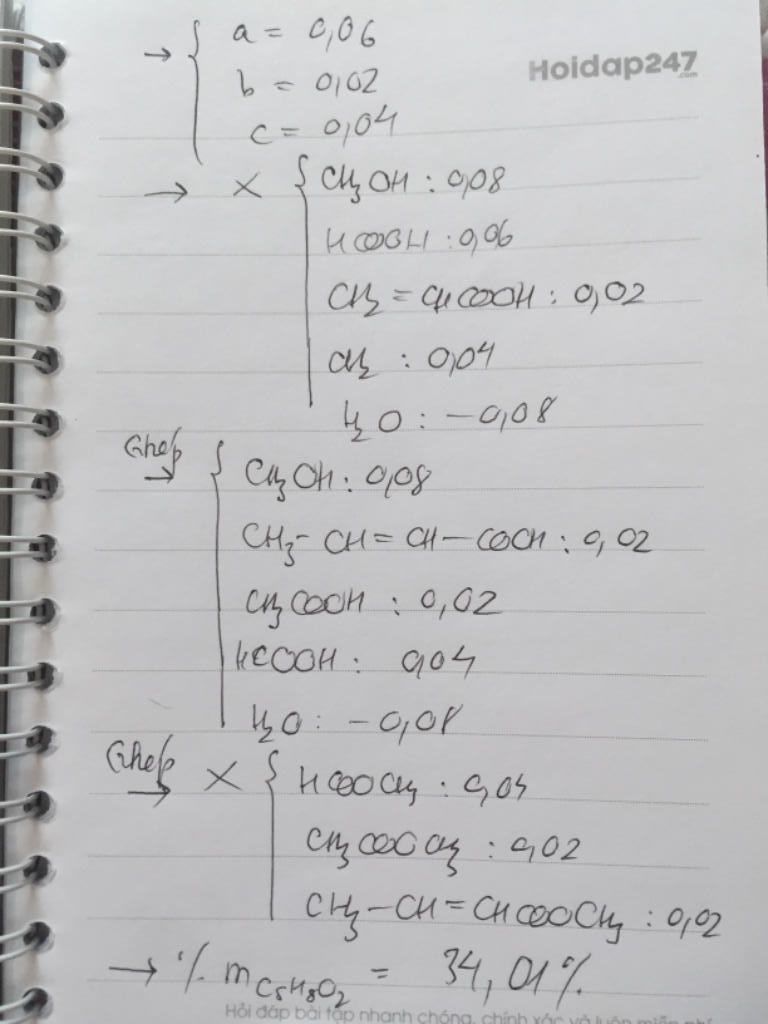 → { a = 0,06
Hoidap247
.com
b = 0,02
c = 0,04
→ X { CH3OH : 0,08
HCOOH : 0,06
CH2 = CHCOOH : 0,02
CH2 : 0,04
H2O : -0,08
Ghép → { CH3OH : 0,08
CH3- CH = CH - COOH : 0,02
CH3COOH : 0,02
HCOOH : 0,04
H2O : -0,08
Ghép → X { HCOOCH3 : 0,04
CH3COOCH3 : 0,02
CH3-CH=CHCOOCH3 : 0,02
→ % m C5H8O2 = 34,01%
Hỏi đáp bài tập nhanh chóng, chính xác và luôn miễn phí